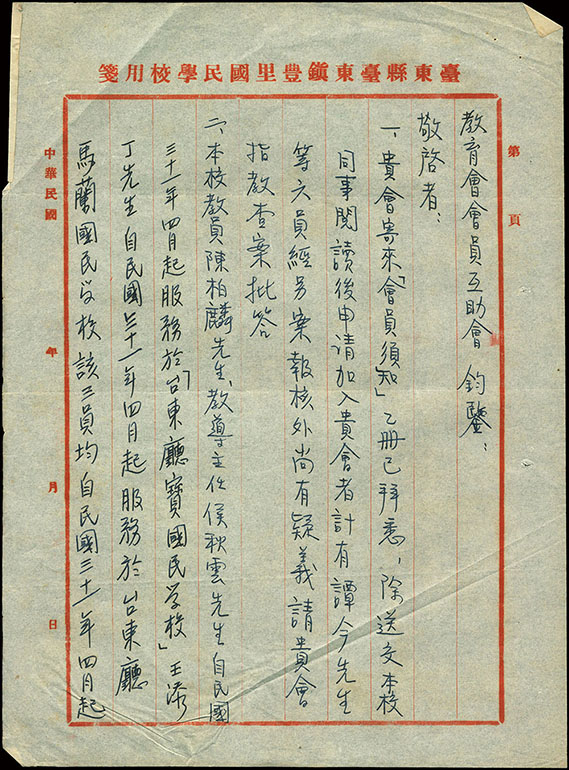 臺東縣臺東鎮豐里國民學校用箋
第 頁
教育會會員互助會 鈞鑒：
敬啓者：
一、貴會寄來「會員須知」乙冊已拜悉，除送交本校
同事閱讀後申請加入貴會者計有譚今先生
等六員經另案報核外尚有疑義請貴會
指教查案批答
二、本校教員陳柏麟先生、教導主任侯秋雲先生自民國
三十一年四月起服務於「台東廳寶國民学校」王添
丁先生自民國三十一年四月起服務於台東廳
馬蘭國民学校該三員均自民國三十一年四月起
中華民國 年 月 日